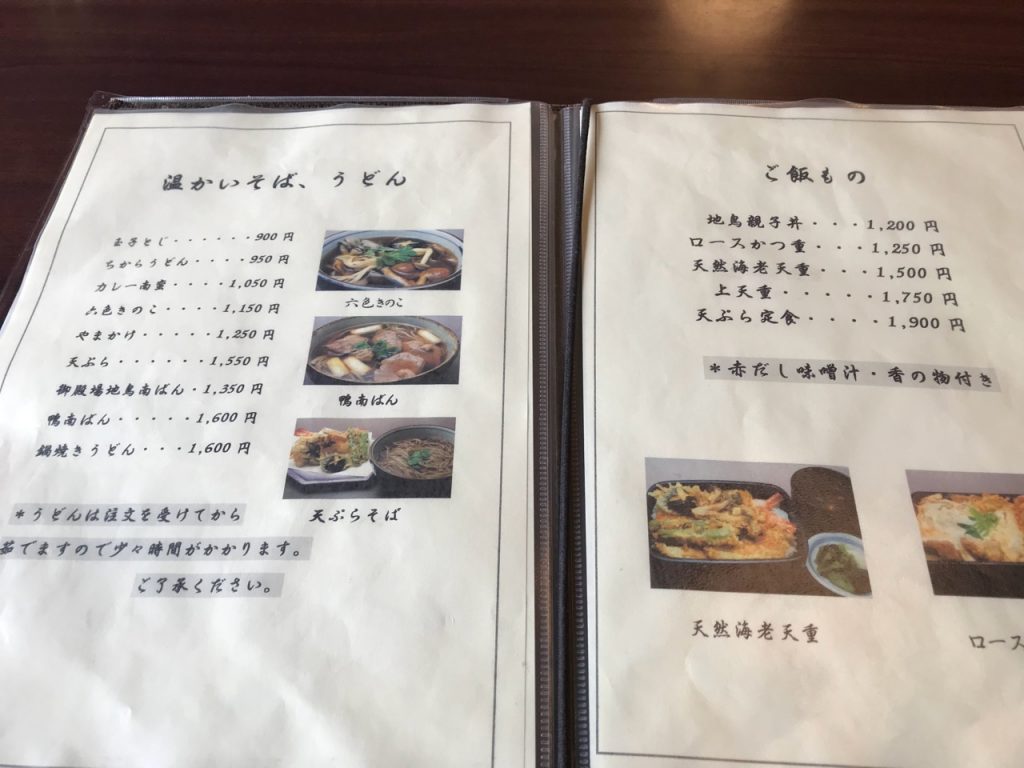 温かいそば、うどん
玉子とじ・・・・・・900 円
ちからうどん・・・・950 円
カレー南蛮・・・・1,050 円
六色きのこ・・・・1,150 円
やまかけ・・・・・1,250 円
天ぷら・・・・・・1,550 円
御殿場地鳥南ばん・1,350 円
鴨南ばん・・・・・1,600 円
鍋焼きうどん・・・1,600 円
六色きのこ
鴨南ばん
天ぷらそば
*うどんは注文を受けてから
茹でますので少々時間がかかります。
ご了承ください。
ご飯もの
地鳥親子丼・・・1,200 円
ロースかつ重・・・1,250 円
天然海老天重・・・1,500 円
上天重・・・・・1,750 円
天ぷら定食・・・・1,900 円
*赤だし味噌汁・香の物付き
天然海老天重
ロース